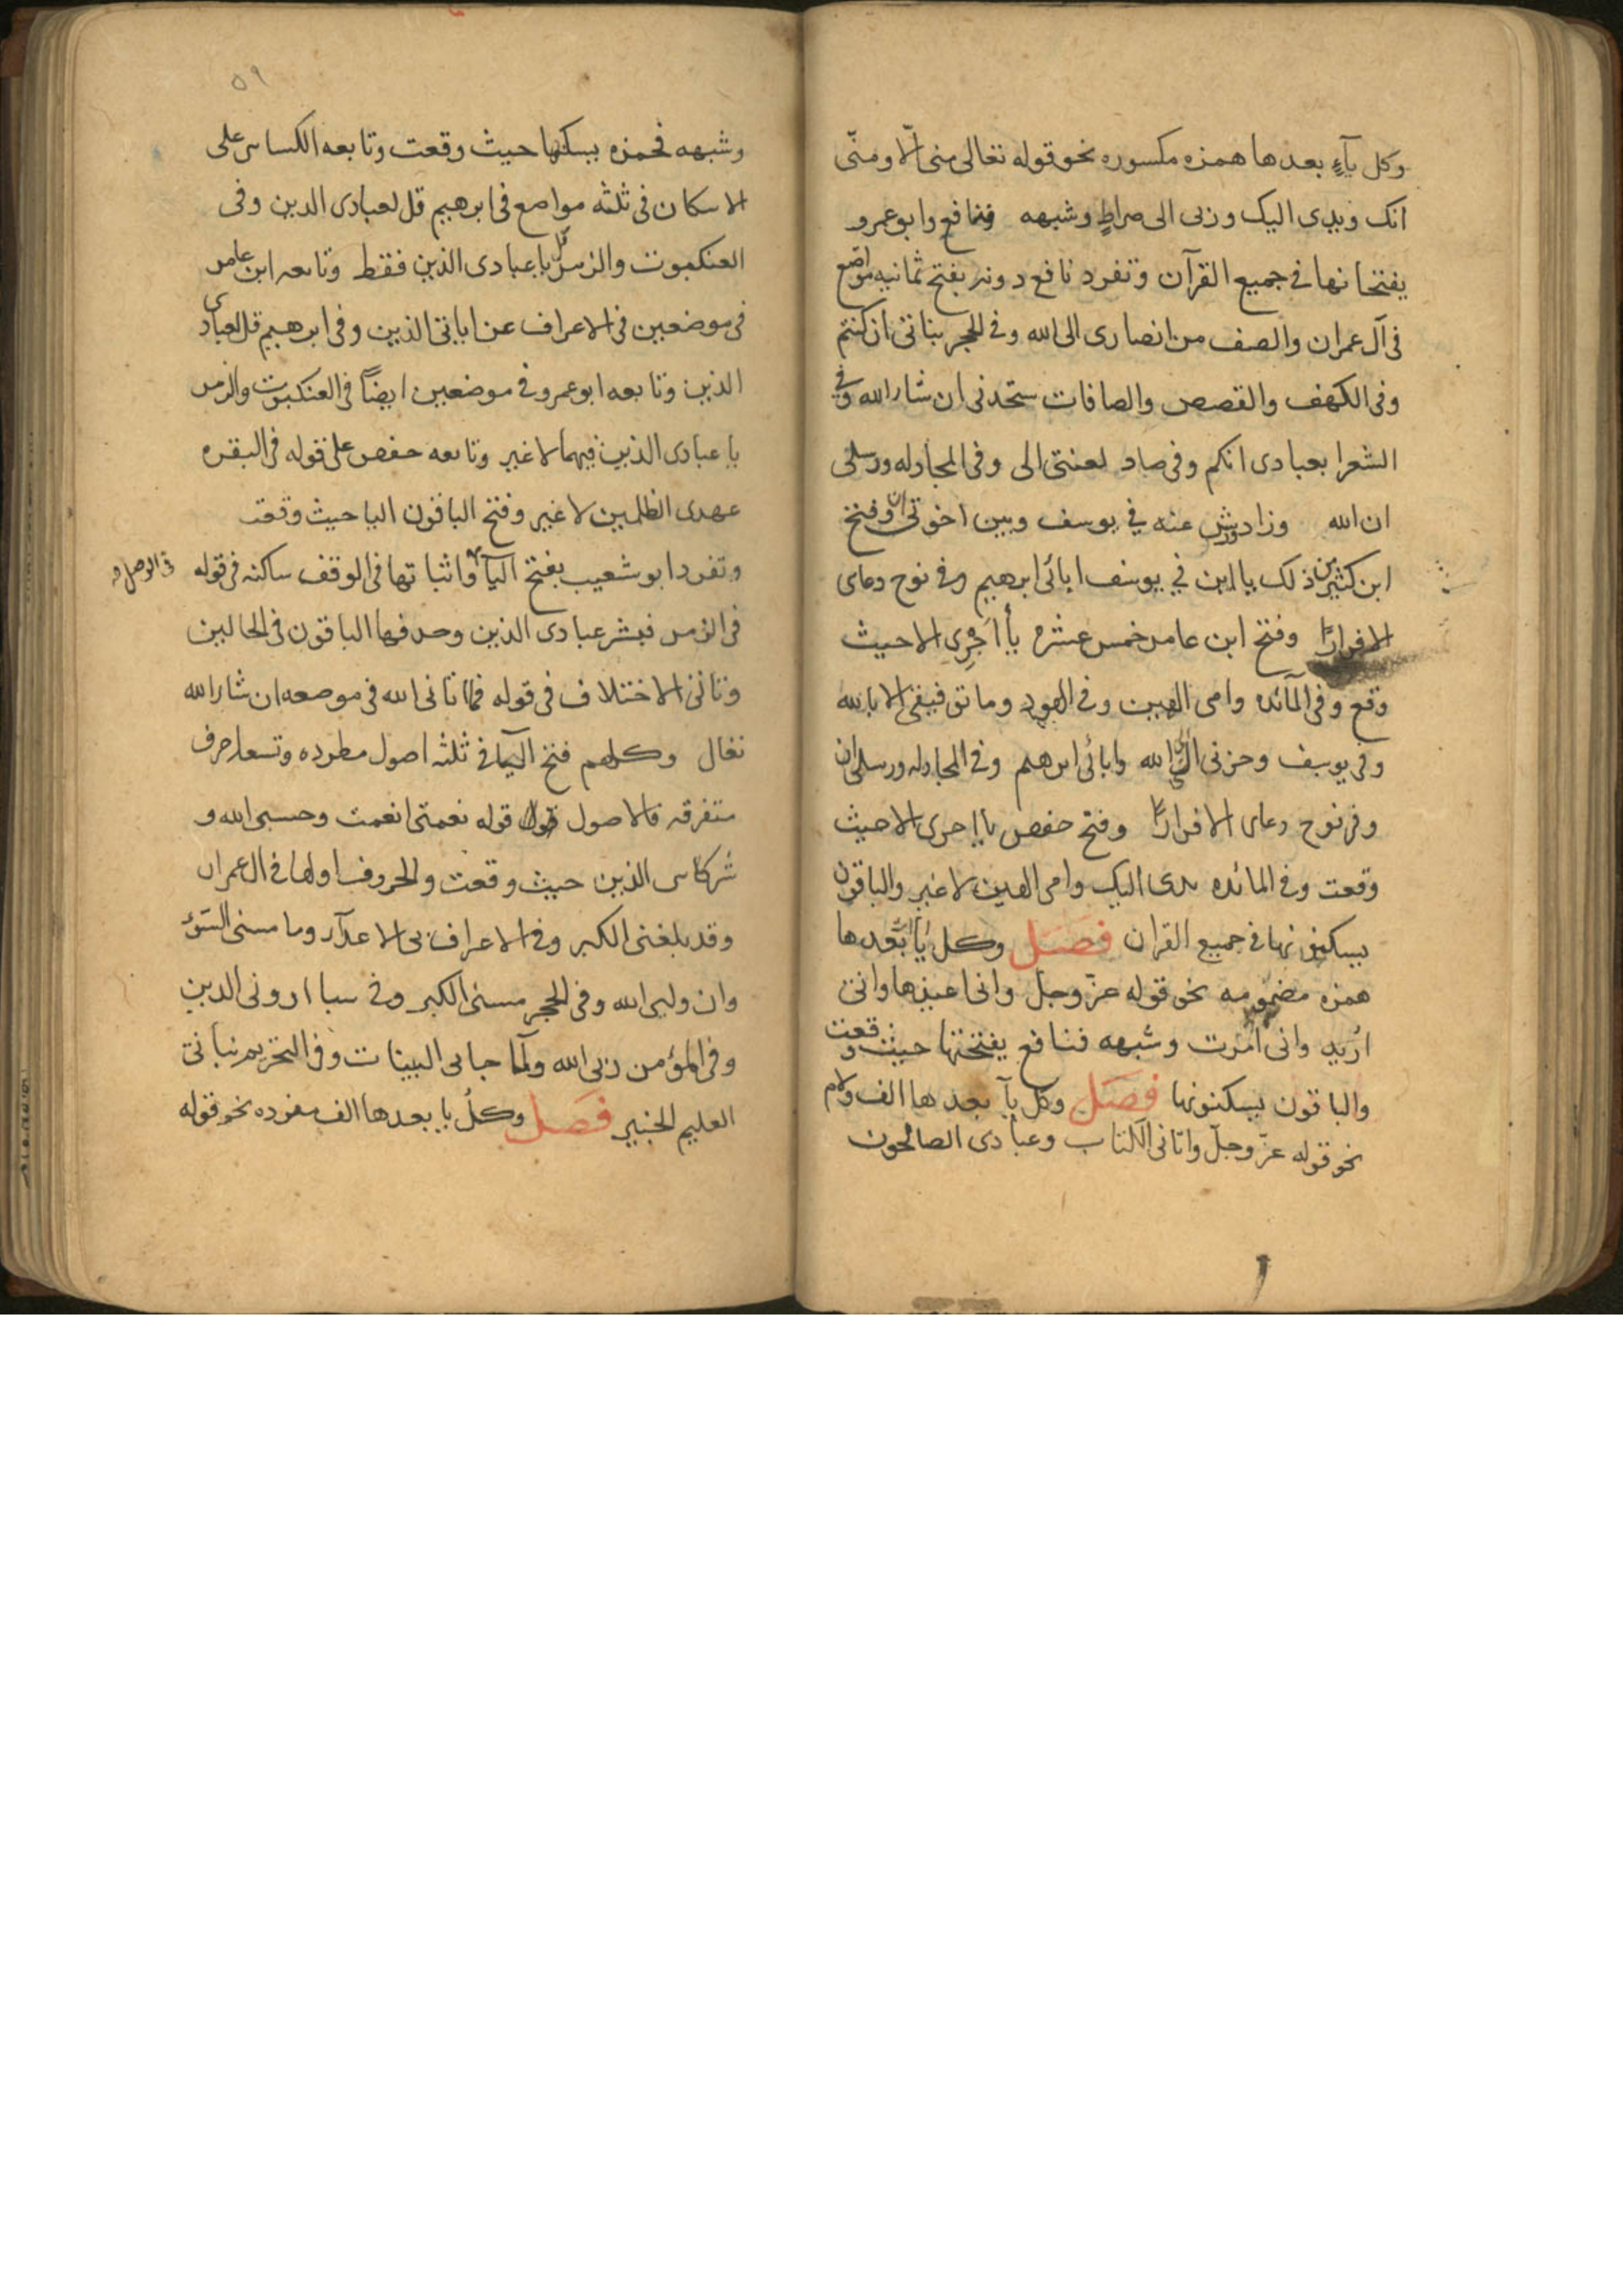 وكل يآءٍ بعدها همزه مكسوره نحو قوله تعالى منى الّا ومنّى
انك ويدى اليك وربى الى صراطٍ وشبهه فنافع وابو عمرو
يفتحانها فى جميع القرآن وتفرد نافع دونه بفتح ثمانيه مواضع
فى آل عمران والصف من انصارى الى الله وفى الحجر بناتى ان كنتم
وفى الكهف والقصص والصافات ستجدنى ان شا الله وفى
الشعرا بعبادى انكم وفى صاد لعنتى الى وفى المجادله ورسلى
ان الله وزاد ورش عنه فى يوسف وبين اخوتى ان وفتح
ابن كثير من ذلك ياابن فى يوسف ابائى ابرهيم وفى نوح دعاى
الا فرارًا وفتح ابن عامر خمس عشره يا اجرى الا حيث
وقع وفى المآئده وامى الهين وفى الهود وما توفيقى الا بالله
وفى يوسف وحزنى الى الله وابائى ابرهيم وفى المجادله ورسلى ان
وفى نوح دعاى الا فرارًا وفتح حفص يا اجرى الا حيث
وقعت وفى المائده يدى اليك وامى الهين لا غير والباقون
يسكنونها فى جميع القران فصل وكل يا بعدها
همزه مضمومه نحو قوله عزّ وجل وانى اعيذها وانى
اريد وانى امرت وشبهه فنافع يفتحها حيث وقعت
والباقون يسكنونها فصل وكل يآ بعدها الف ولام
نحو قوله عزّ وجلّ واتانى الكتاب وعبادى الصالحون
٥٩
وشبهه فحمزه يسكنها حيث وقعت وتابعه الكساى على
الاسكان فى ثلثه مواضع فى ابرهيم قل لعبادى الذين وفى
العنكبوت والزمر يا عبادى الذين فقط وتابعه ابن عامر
فى موضعين فى الاعراف عن اياتى الذين وفى ابرهيم قل لعبادى
الذين وتابعه ابو عمرو فى موضعين ايضًا فى العنكبوت والزمر
يا عبادى الذين فيهما لا غير وتابعه حفص على قوله فى البقره
عهدى الظلمين لا غير وفتح الباقون اليا حيث وقعت
وتفرد ابو شعيب بفتح اليآ واثباتها فى الوقف ساكنه فى قوله
فى الوصل
فى الزمر فبشر عبادى الذين وحذفها الباقون فى الحالين
وتاتى الاختلاف فى قوله فما اتانى الله فى موضعه ان شا الله
تعالى وكلهم فتح اليآ فى ثلثه اصول مطرده وتسعه احرف
متفرقه فالاصول قوله نعمتى انعمت وحسبى الله و
شركاى الذين حيث وقعت والحروف اولها فى ال عمران
وقد بلغنى الكبر وفى الاعراف بى الاعدآء وما مسنى السّوء
وان وليى الله وفى الحجر مسنى الكبر وفى سبا ارونى الذين
وفى المؤمن ربى الله ولمّا جانى البينات وفى التحريم نبانى
العليم الخبير فصل وكل يا بعدها الف مفرده نحو قوله